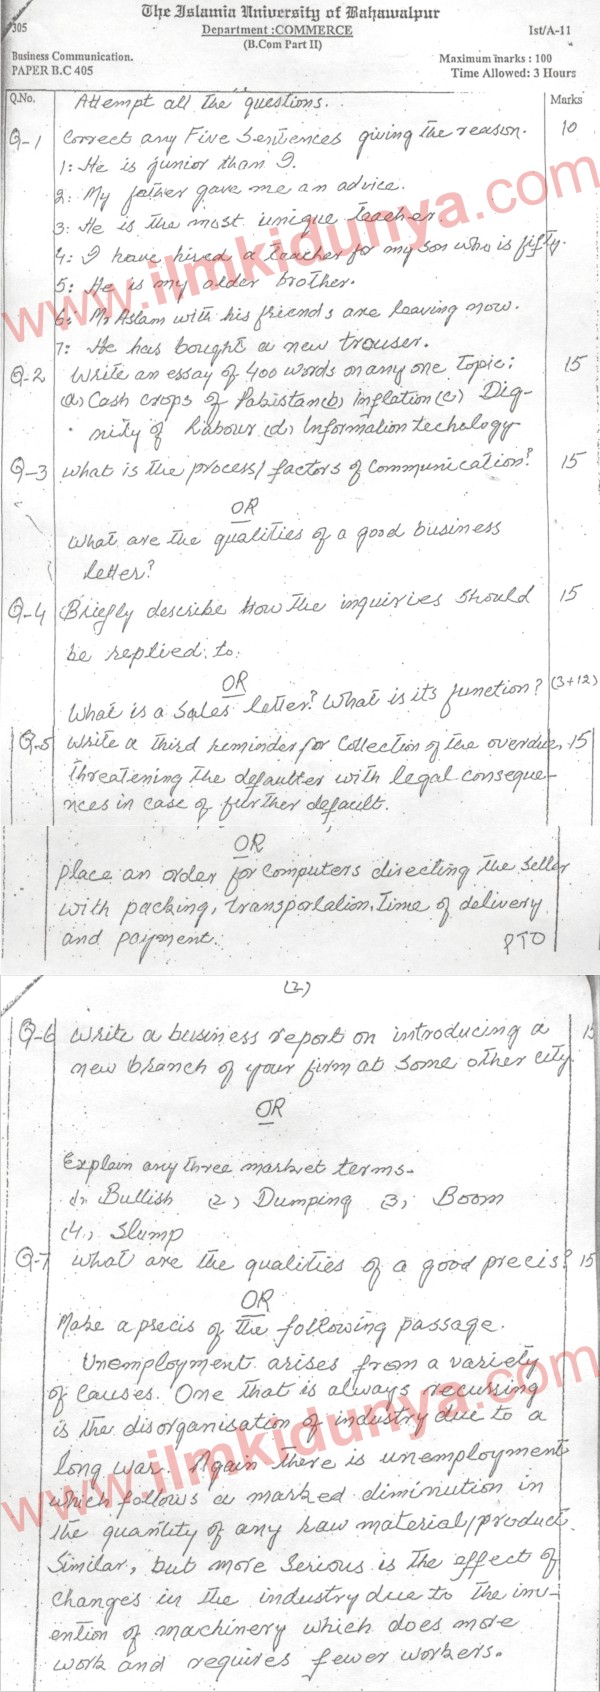 The Islamia University of Bahawalpur
305
Department :COMMERCE
Ist/A-11
(B.Com Part II)
Business Communication.
Maximum marks : 100
PAPER B.C 405
Time Allowed: 3 Hours
Q.No. Attempt all the questions. Marks
Q-1 Correct any Five Sentences giving the reason. 10
1: He is junior than I.
2: My father gave me an advice.
3: He is the most unique teacher.
4: I have hired a teacher for my son who is fifty.
5: He is my older brother.
6: Mr Aslam with his friends are leaving now.
7: He has bought a new trouser.
Q-2 Write an essay of 400 words on any one topic: 15
(a) Cash crops of Pakistan (b) Inflation (c) Dig-
nity of Labour (d) Information techology
Q-3 What is the process/factors of Communication? 15
OR
What are the qualities of a good business
letter?
Q-4 Briefly describe how the inquiries should 15
be replied to.
OR
What is a Sales letter? What is its function? (3+12)
Q-5 Write a third reminder for Collection of the overdue, 15
threatening the defaulter with legal conseque-
nces in case of further default.
OR
Place an order for computers directing the seller
with packing, transportation, time of delivery
and payment.
PTO
(2)
Q-6 Write a business report on introducing a 15
new branch of your firm at some other city.
OR
Explain any three market terms.
(1) Bullish (2) Dumping (3) Boom
(4) Slump
Q-7 What are the qualities of a good precis? 15
OR
Make a precis of the following passage.
Unemployment arises from a variety
of causes. One that is always recurring
is the disorganisation of industry due to a
long war. Again there is unemployment
which follows a marked diminution in
the quantity of any raw material/product.
Similar, but more serious is the effect of
changes in the industry due to the inv-
ention of machinery which does more
work and requires fewer workers.
www.ilmkidunya.com
www.ilmkidunya.com